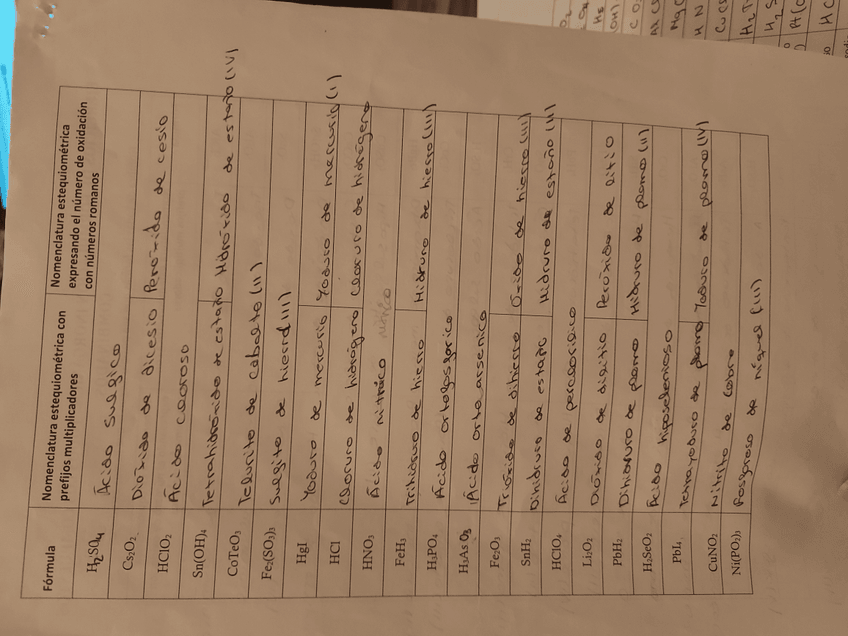 Fórmula
Nomenclatura estequiométrica con
prefijos multiplicadores
Nomenclatura estequiométrica
expresando el número de oxidación
con números romanos
H₂SO₄ Ácido sulfico
Cs₂O₂ Dióxido de dicesio Peróxido de cesio
HClO₂ Ácido cloroso
Sn(OH)₄ Tetrahidróxido de estaño Hidróxido de estaño (IV)
CoTeO₃ Telurito de cobalto (II)
Fe₂(SO₃)₃ Sulfito de hierro (III)
HgI Yoduro de mercurio Yoduro de mercurio (I)
HCl Cloruro de hidrógeno Cloruro de hidrógeno
HNO₃ Ácido nítrico nítrico
FeH₃ Trihidruro de hierro Hidruro de hierro (III)
H₃PO₄ Ácido ortofosforico
H₃AsO₃ Ácido orto arsenico
Fe₂O₃ Trióxido de dihierro Óxido de hierro (III)
SnH₂ Dihidruro de estaño Hidruro de estaño (II)
HClO₄ Ácido de perclorilico
Li₂O₂ Dióxido de dilitio Peróxido de litio
PbH₂ Dihidruro de plomo Hidruro de plomo (II)
H₂SeO₂ Ácido hiposelenioso
PbI₄ Tetrayoduro de plomo Yoduro de plomo (IV)
CuNO₂ Nitrito de cobre
Ni(PO₂)₃ Fosforoso de níquel (III)